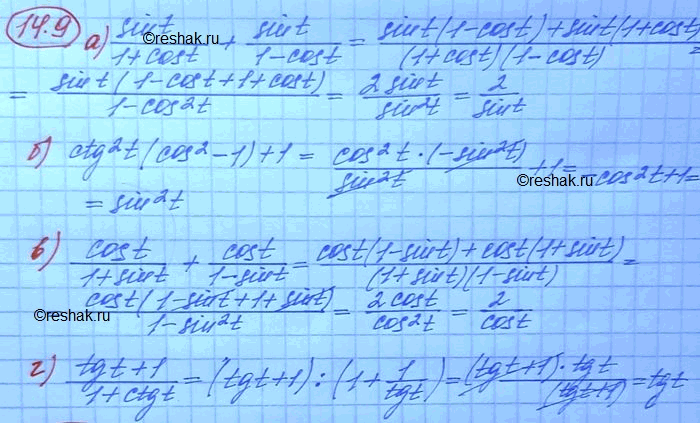 14.9 а) sint/(1+cost) + sint/(1-cost) = (sint(1-cost)+sint(1+cost))/((1+cost)(1-cost)) =
©reshak.ru
= sint(1-cost+1+cost)/(1-cos²t) = 2sint/sin²t = 2/sint
б) ctg²t(cos²-1)+1 = cos²t·(-sin²t)/sin²t +1 = -cos²t+1 =
©reshak.ru
= sin²t
в) cost/(1+sint) + cost/(1-sint) = (cost(1-sint)+cost(1+sint))/((1+sint)(1-sint)) =
cost(1-sint+1+sint)/(1-sin²t) = 2cost/cos²t = 2/cost
©reshak.ru
г) (tgt+1)/(1+ctgt) = (tgt+1):(1+1/tgt) = (tgt+1)·tgt/(tgt+1) = tgt